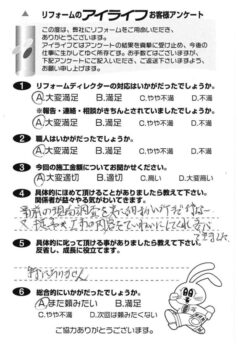 リフォームのアイライフお客様アンケート
この度は、弊社にリフォームをご用命いただき、
ありがとうございます。
アイライフではアンケートの結果を貴重に受け止め、今後の
仕事に生かしてゆく所存です。お手数ではございますが、
下記アンケートにご記入いただき、ご返送下さいますよう、
お願い申し上げます。
1 リフォームディレクターの対応はいかがだったでしょうか。
A.大変満足 B.満足 C.やや不満 D.不満
※報告・連絡・相談がきちんとされていましたでしょうか。
A.大変満足 B.満足 C.やや不満 D.不満
2 職人はいかがだったでしょうか。
A.大変満足 B.満足 C.やや不満 D.不満
3 今回の施工金額についてお聞かせください。
A.大変適切 B.適切 C.高い D.大変高い
4 具体的にほめて頂けることがありましたら教えて下さい。
関係者が益々やる気がわいてきます。
5 具体的に叱って頂ける事がありましたら教えて下さい。
反省し、成長に役立てます。
特にありません
6 総合的にいかがだったでしょうか。
A.また頼みたい B.満足
C.やや不満 D.次回は頼みたくない
ご協力ありがとうございます。